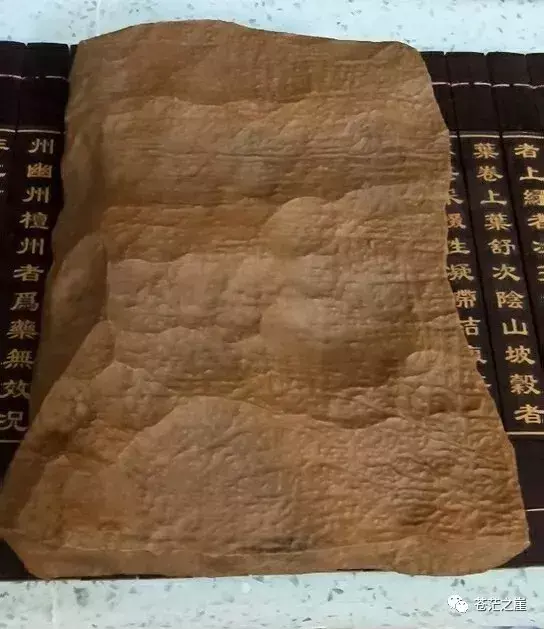 者上緑者次
葉卷上葉舒次陰山坡穀者
掇性凝滯結
州幽州檀州者爲藥無效况
苍茫之崖